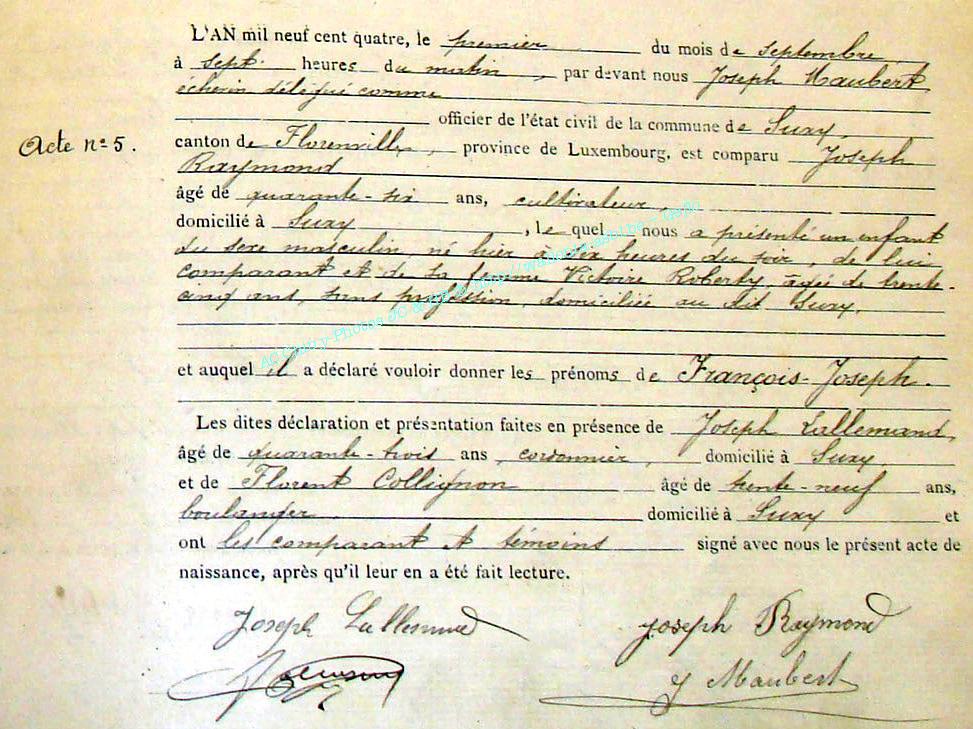 L'AN mil neuf cent quatre, le premier du mois de septembre
à sept heures du matin, par devant nous Joseph Maubert,
échevin délégué comme
officier de l'état civil de la commune de Suxy,
Acte nº 5.
canton de Florenville, province de Luxembourg, est comparu Joseph
Raymond
âgé de quarante-six ans, cultivateur,
domicilié à Suxy, le quel nous a présenté un enfant
du sexe masculin, né hier à six heures du soir, de lui
comparant et de sa femme Victoire Roberty, âgée de trente-
cinq ans, sans profession, domiciliée au dit Suxy.
et auquel il a déclaré vouloir donner les prénoms de François-Joseph.
Les dites déclaration et présentation faites en présence de Joseph Lallemand,
âgé de quarante-trois ans, cordonnier, domicilié à Suxy,
et de Florent Collignon âgé de trente-neuf ans,
boulanger, domicilié à Suxy et
ont les comparant et témoins signé avec nous le présent acte de
naissance, après qu'il leur en a été fait lecture.
Joseph Lallemand Joseph Raymond
J Maubert